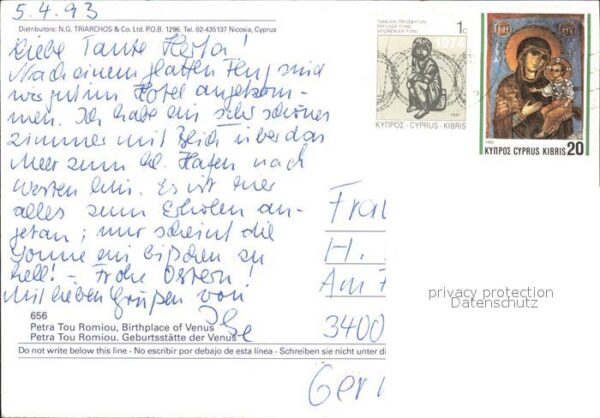 5.4.93
Distributors: N.G. TRIARCHOS & Co. Ltd P.O.B. 1296. Tel. 02-435137 Nicosia, Cyprus
Liebe Tante Herta!
Nach einem glatten Flug sind
wir gut im Hotel angekom-
men. Ich habe ein sehr schönes
Zimmer mit Blick über das
Meer zum Hafen nach
Westen hin. Es ist hier
alles zum Erholen an-
getan; nur scheint die
Sonne ein bißchen zu
hell! - Frohe Ostern!
Mit lieben Grüßen von
ΤΑΜΕΙΟΝ ΠΡΟΣΦΥΓΩΝ
REFUGEE FUND
GÖÇMENLER FONU
1c
1974
1991
ΚΥΠΡΟΣ · CYPRUS · KIBRIS
ΚΥΠΡΟΣ CYPRUS KIBRIS 20
Frau
H.
Am
3400
Ger
656
Petra Tou Romiou, Birthplace of Venus
Petra Tou Romiou. Geburtsstätte der Venus
Do not write below this line - No escribir por debajo de esta línea - Schreiben sie nicht unter di
privacy protection
Datenschutz